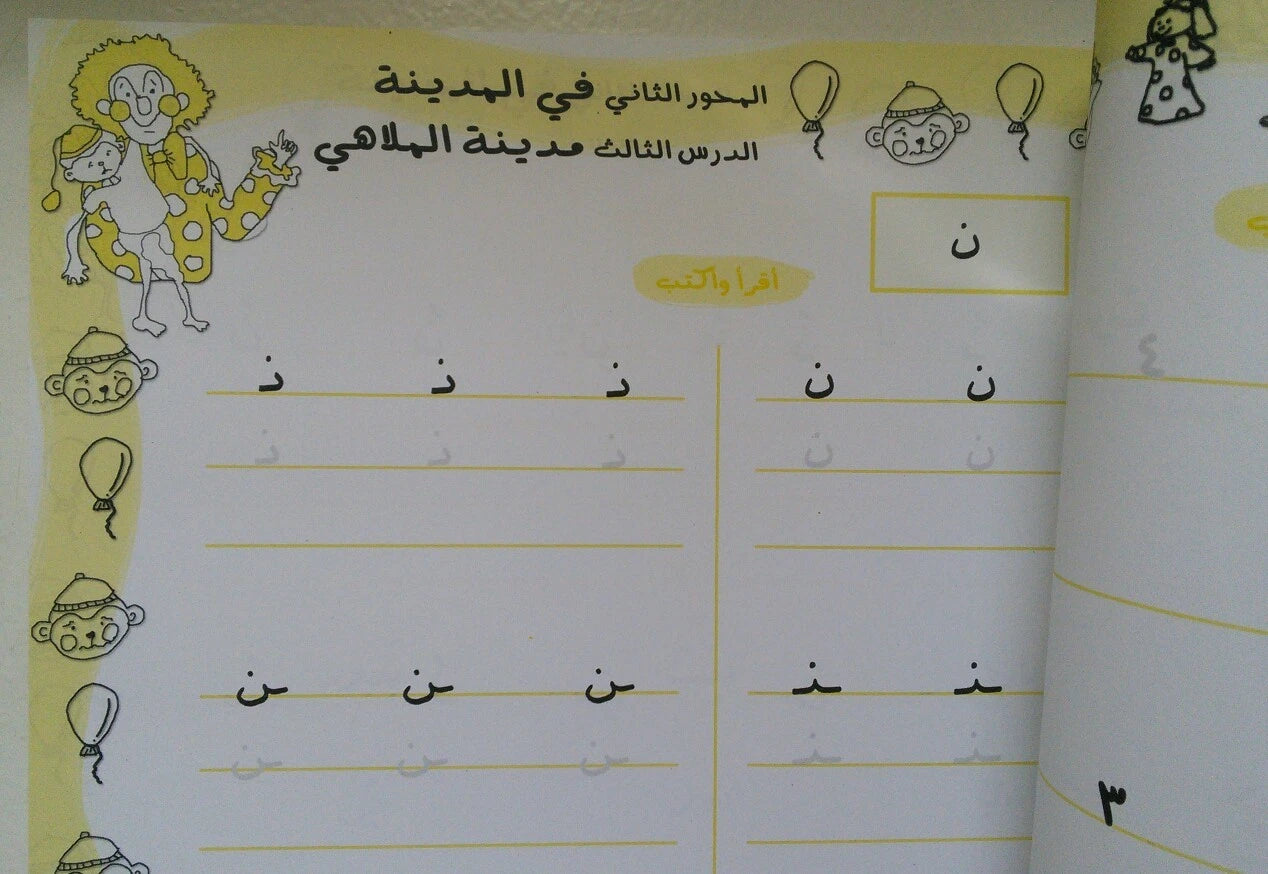 المحور الثاني في المدينة
الدرس الثالث مدينة الملاهي
ن
اقرأ واكتب
ن ن نـ نـ نـ
ن ن نـ نـ نـ
ـنـ ـنـ ـن ـن ـن
ـنـ ـنـ ـن ـن ـن
٤
٣